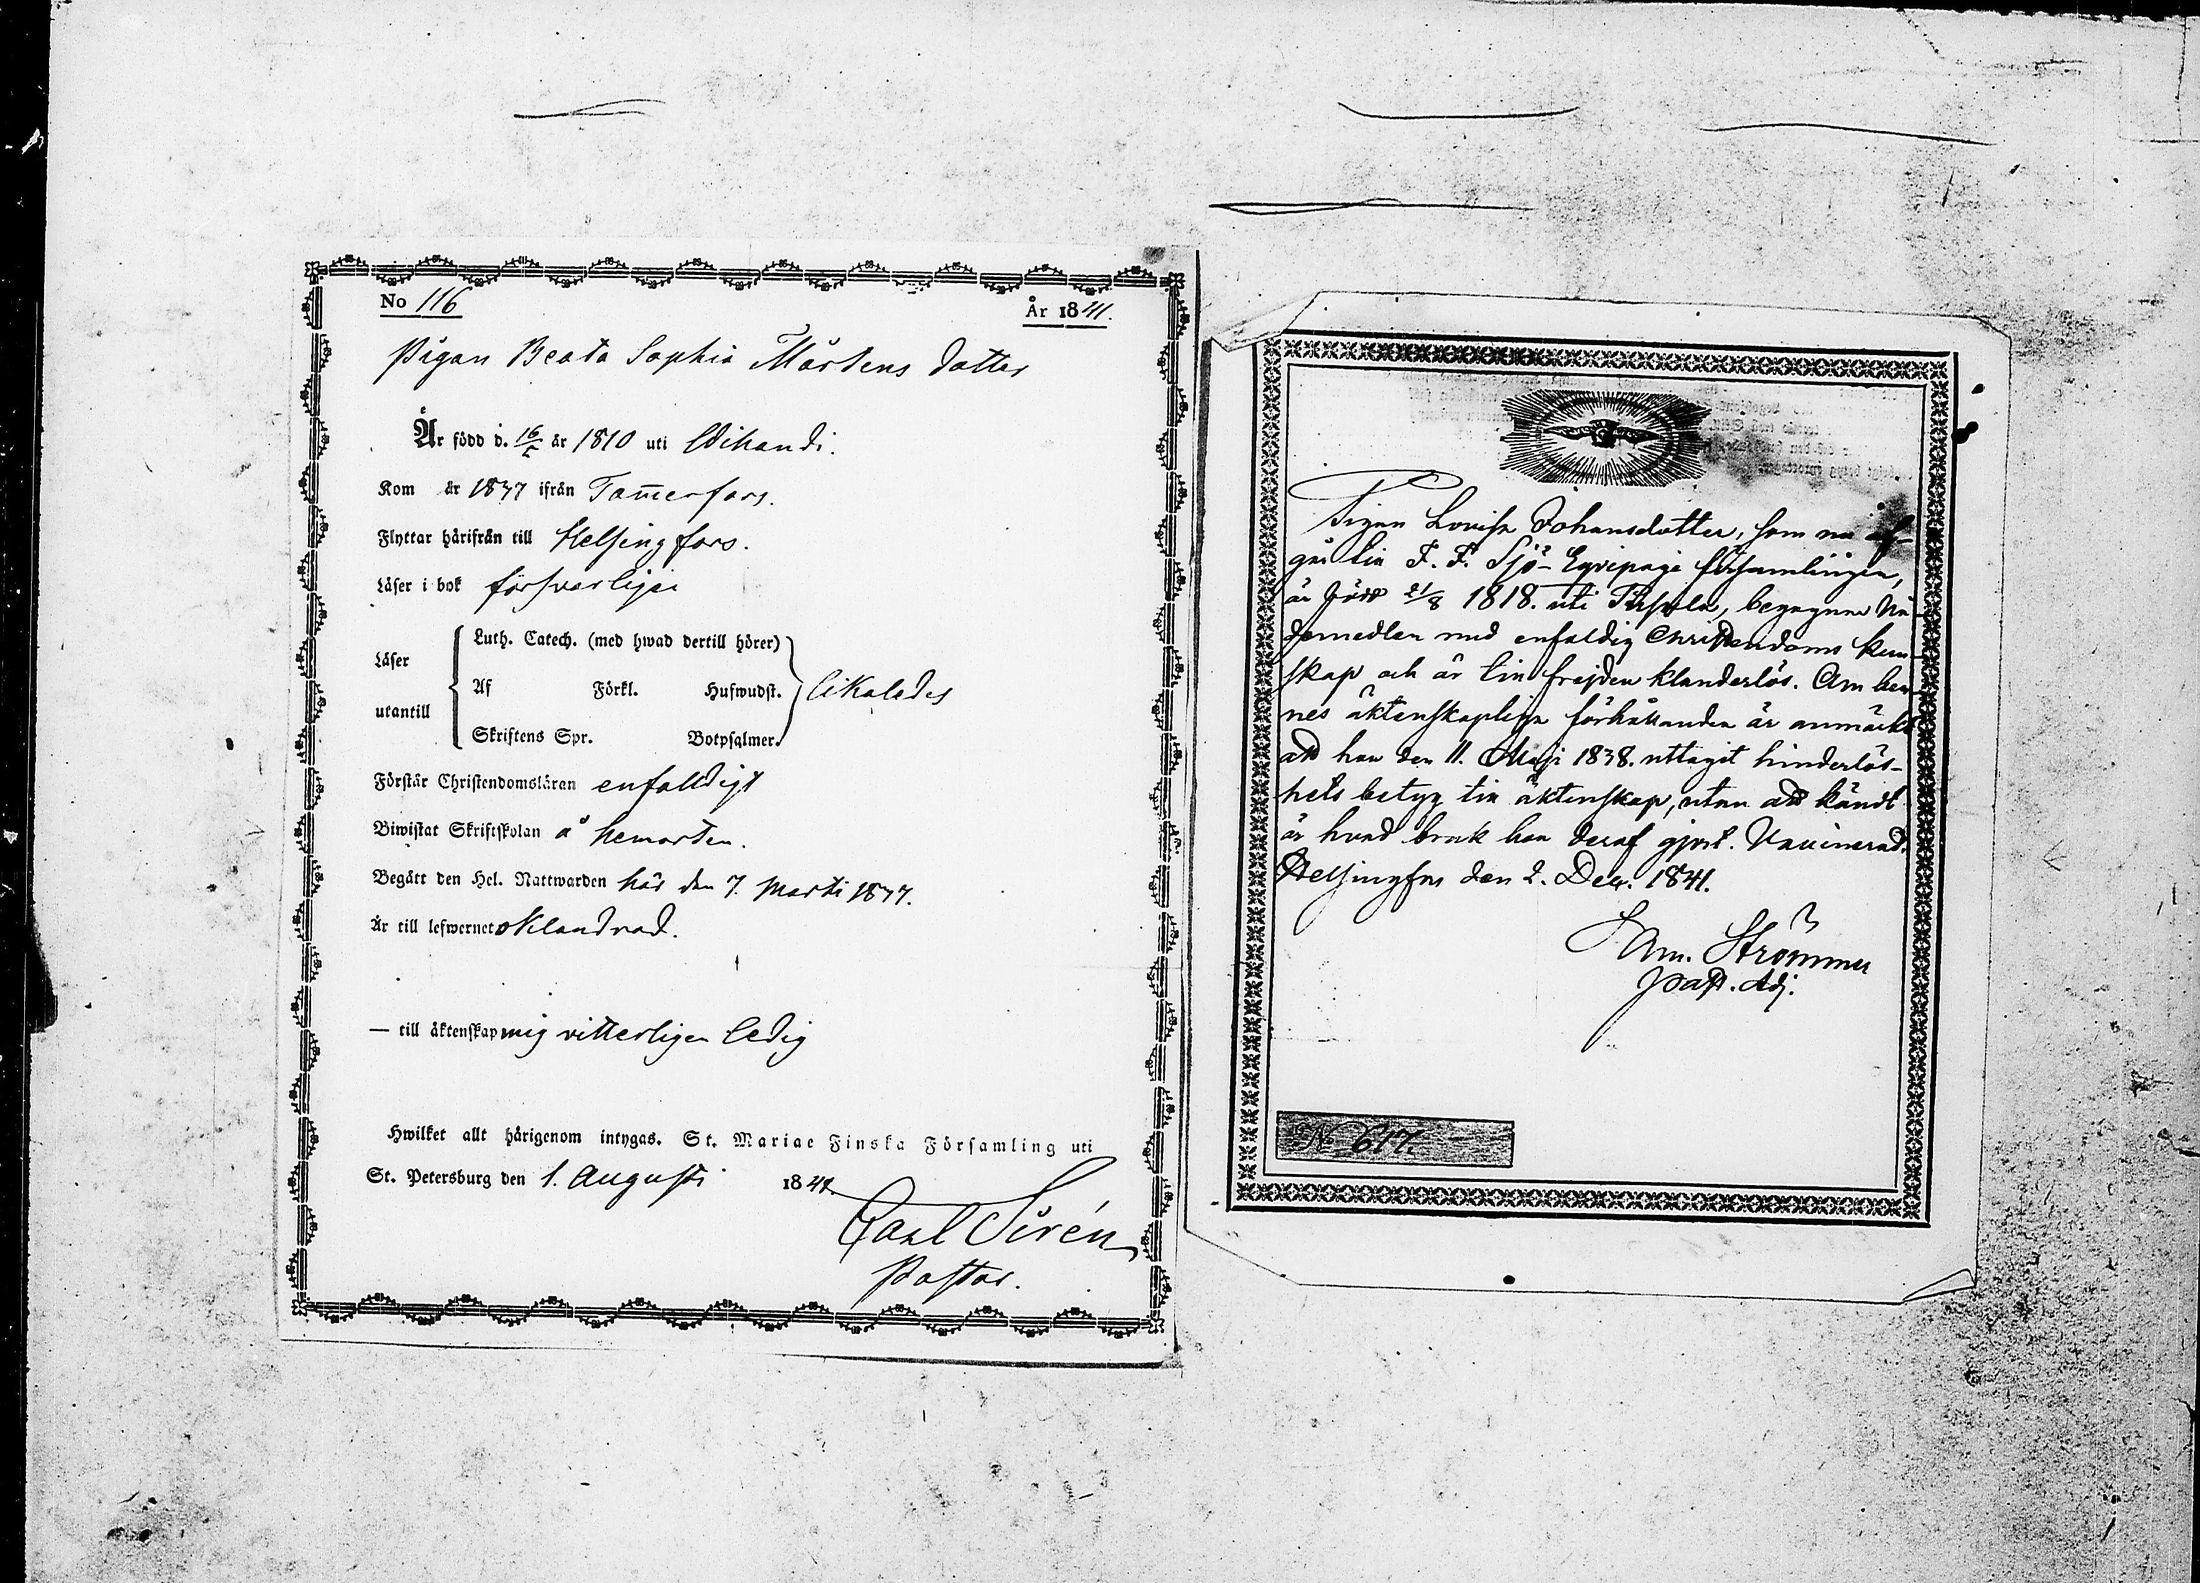 No 116
År 1841.
Pigan Beata Sophia Mårtens dotter
Är född d. 16/ år 1810 uti Idikandi.
Kom år 1837 ifrån Tam̄erfors.
Flyttar härifrån till Helsingfors.
Läser i bok försvarligen
Läser utantill
Luth. Catech. (med hwad dertill hörer)
Af Förkl. Hufwudst.
Skriftens Spr. Botpsalmer.
likaledes
Förstår Christendomsläran enfalldigt
Biwistat Skriftskolan å hemorten.
Begått den Hel. Nattwarden här den 7. Marti 1837.
Är till lefwernet oklandrad.
— till äktenskap mig vitterligen ledig
Hwilket allt härigenom intygas. St. Mariae Finska Församling uti
St. Petersburg den 1. Augusti 1841.
Carl Sirén
Pastor.
Pigan Lovisa Johansdotter, som nu af-
går till F. F. Sjö-Eqvipage församlingen,
är född 21/8 1818. uti , begagnar Nå-
demedlen med enfaldig Christendoms kun-
skap och är till frejden klanderlös. Om hen-
nes äktenskapliga förhållanden är anmärkt
att hon den 11. Maji 1838. uttagit hinderlös-
hets betyg till äktenskap, utan att kändt
är hvad bruk hon deraf gjort. Vaccinerad.
Helsingfors den 2. Dec. 1841.
Am. Strömmer
past. Adj.
No 617.